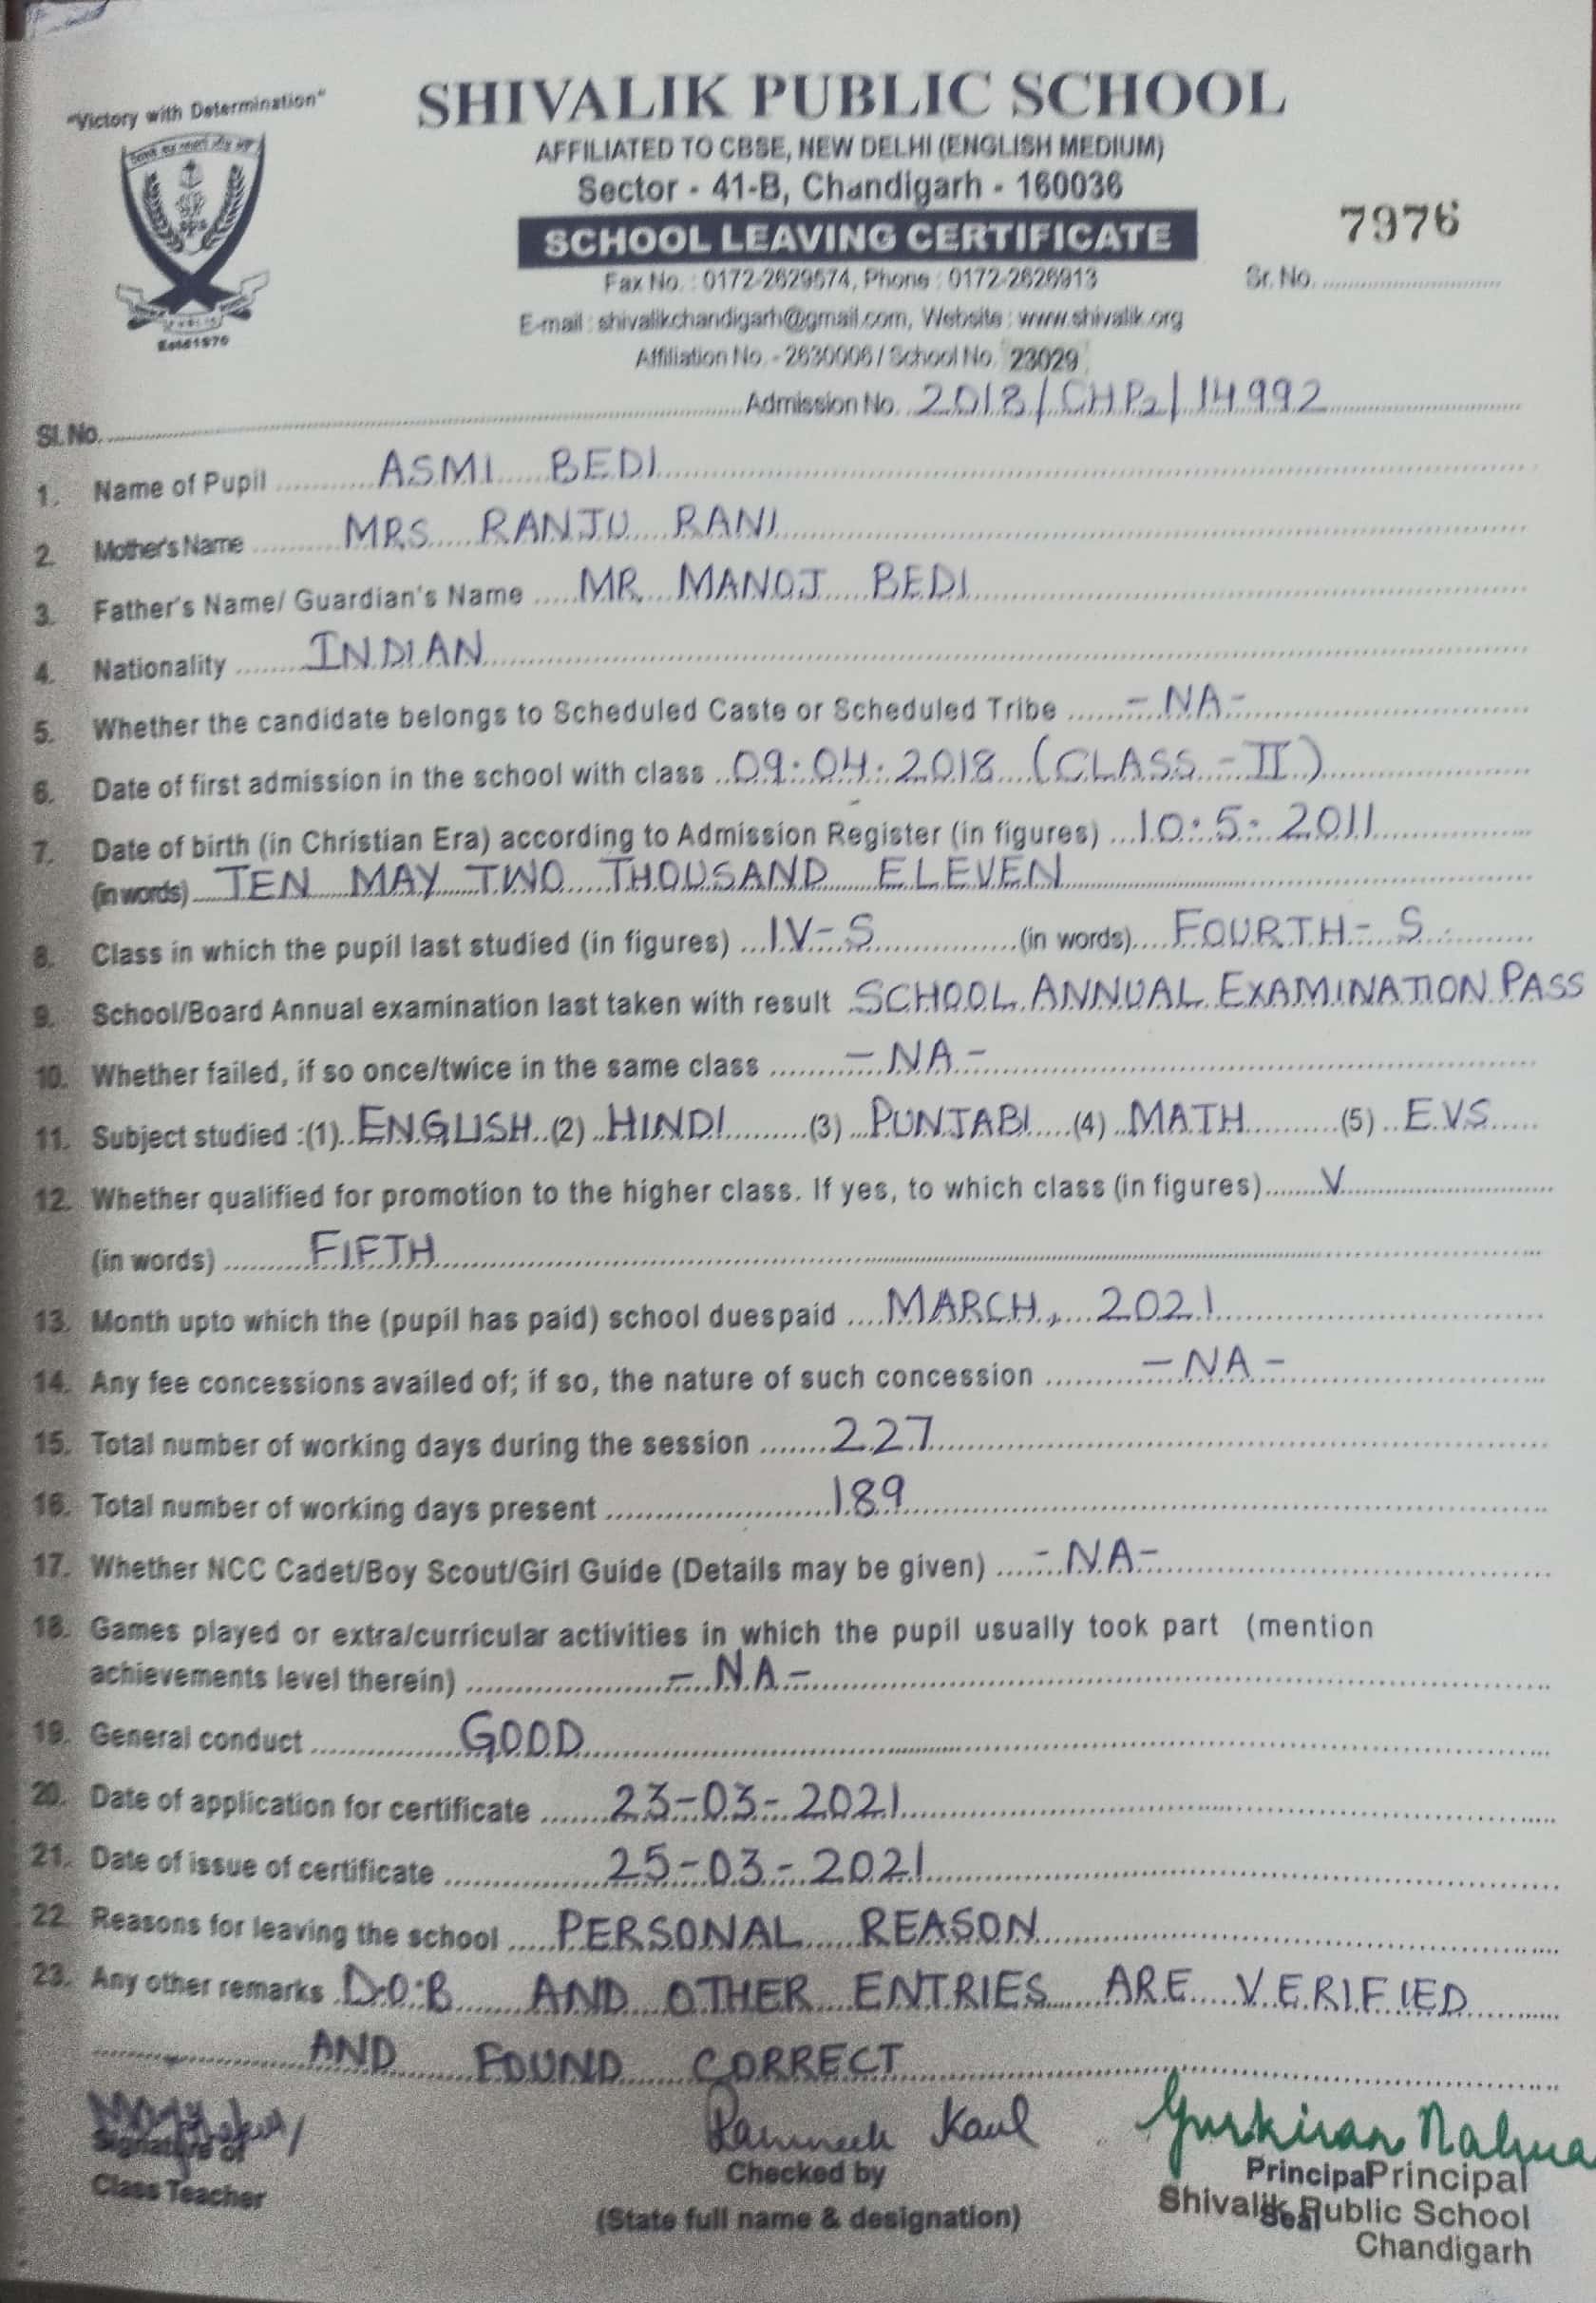 "Victory with Determination"
SHIVALIK PUBLIC SCHOOL
AFFILIATED TO CBSE, NEW DELHI (ENGLISH MEDIUM)
Sector - 41-B, Chandigarh - 160036
SCHOOL LEAVING CERTIFICATE
7976
Fax No. : 0172-2629674, Phone : 0172-2626913
Sr. No.
E-mail : shivalikchandigarh@gmail.com, Website : www.shivalik.org
Estd 1970
Affiliation No. - 2630006 / School No. 23029
Sl. No. Admission No. 2018/CHP2/14992
1. Name of Pupil ASMI BEDI
2. Mother's Name MRS RANJU RANI
3. Father's Name/ Guardian's Name MR MANOJ BEDI
4. Nationality INDIAN
5. Whether the candidate belongs to Scheduled Caste or Scheduled Tribe - NA -
6. Date of first admission in the school with class 09.04.2018 (CLASS - II)
7. Date of birth (in Christian Era) according to Admission Register (in figures) 10.5.2011
(in words) TEN MAY TWO THOUSAND ELEVEN
8. Class in which the pupil last studied (in figures) IV-S (in words) FOURTH - S
9. School/Board Annual examination last taken with result SCHOOL ANNUAL EXAMINATION PASS
10. Whether failed, if so once/twice in the same class - NA -
11. Subject studied :(1) ENGLISH (2) HINDI (3) PUNJABI (4) MATH (5) E.V.S
12. Whether qualified for promotion to the higher class. If yes, to which class (in figures) V
(in words) FIFTH
13. Month upto which the (pupil has paid) school dues paid MARCH, 2021
14. Any fee concessions availed of; if so, the nature of such concession - NA -
15. Total number of working days during the session 227
16. Total number of working days present 189
17. Whether NCC Cadet/Boy Scout/Girl Guide (Details may be given) - NA -
18. Games played or extra/curricular activities in which the pupil usually took part (mention
achievements level therein) - NA -
19. General conduct GOOD
20. Date of application for certificate 23-03-2021
21. Date of issue of certificate 25-03-2021
22. Reasons for leaving the school PERSONAL REASON
23. Any other remarks D.O.B AND OTHER ENTRIES ARE VERIFIED
AND FOUND CORRECT
Kaul Gurkiran Nalwa
Signature of Checked by Principal Principal
Class Teacher (State full name & designation) Seal Shivalik Public School
Chandigarh